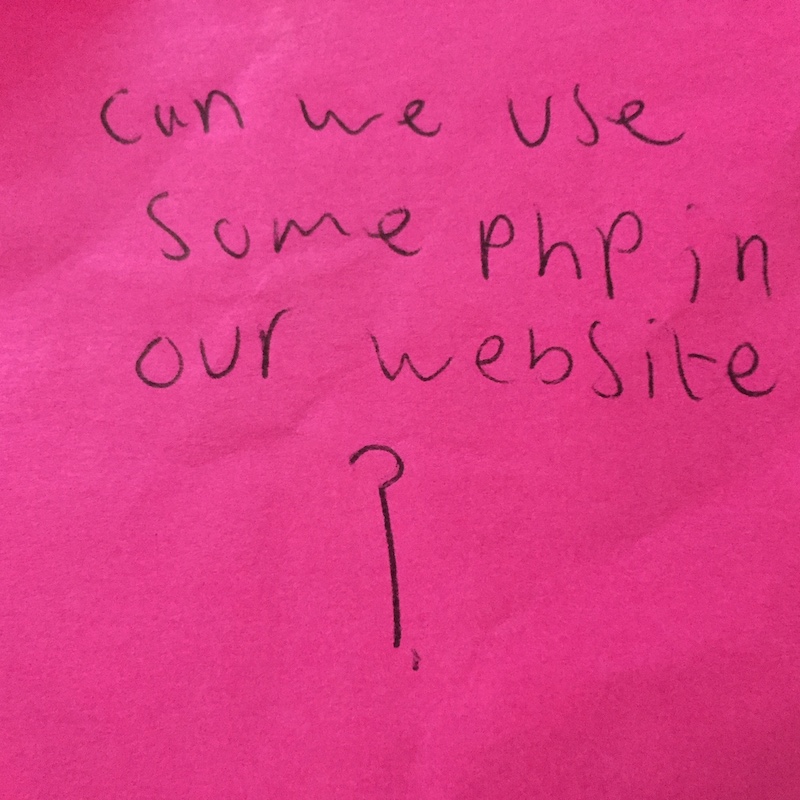 can we use
some php in
our website
?